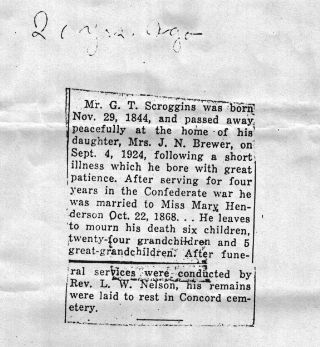 20 yrs. ago
Mr. G. T. Scroggins was born
Nov. 29, 1844, and passed away
peacefully at the home of his
daughter, Mrs. J. N. Brewer, on
Sept. 4, 1924, following a short
illness which he bore with great
patience. After serving for four
years in the Confederate war he
was married to Miss Mary Hen-
derson Oct. 22, 1868. . . He leaves
to mourn his death six children,
twenty-four grandchildren and 5
great-grandchildren. After fune-
ral services were conducted by
Rev. L. W. Nelson, his remains
were laid to rest in Concord cem-
etery.